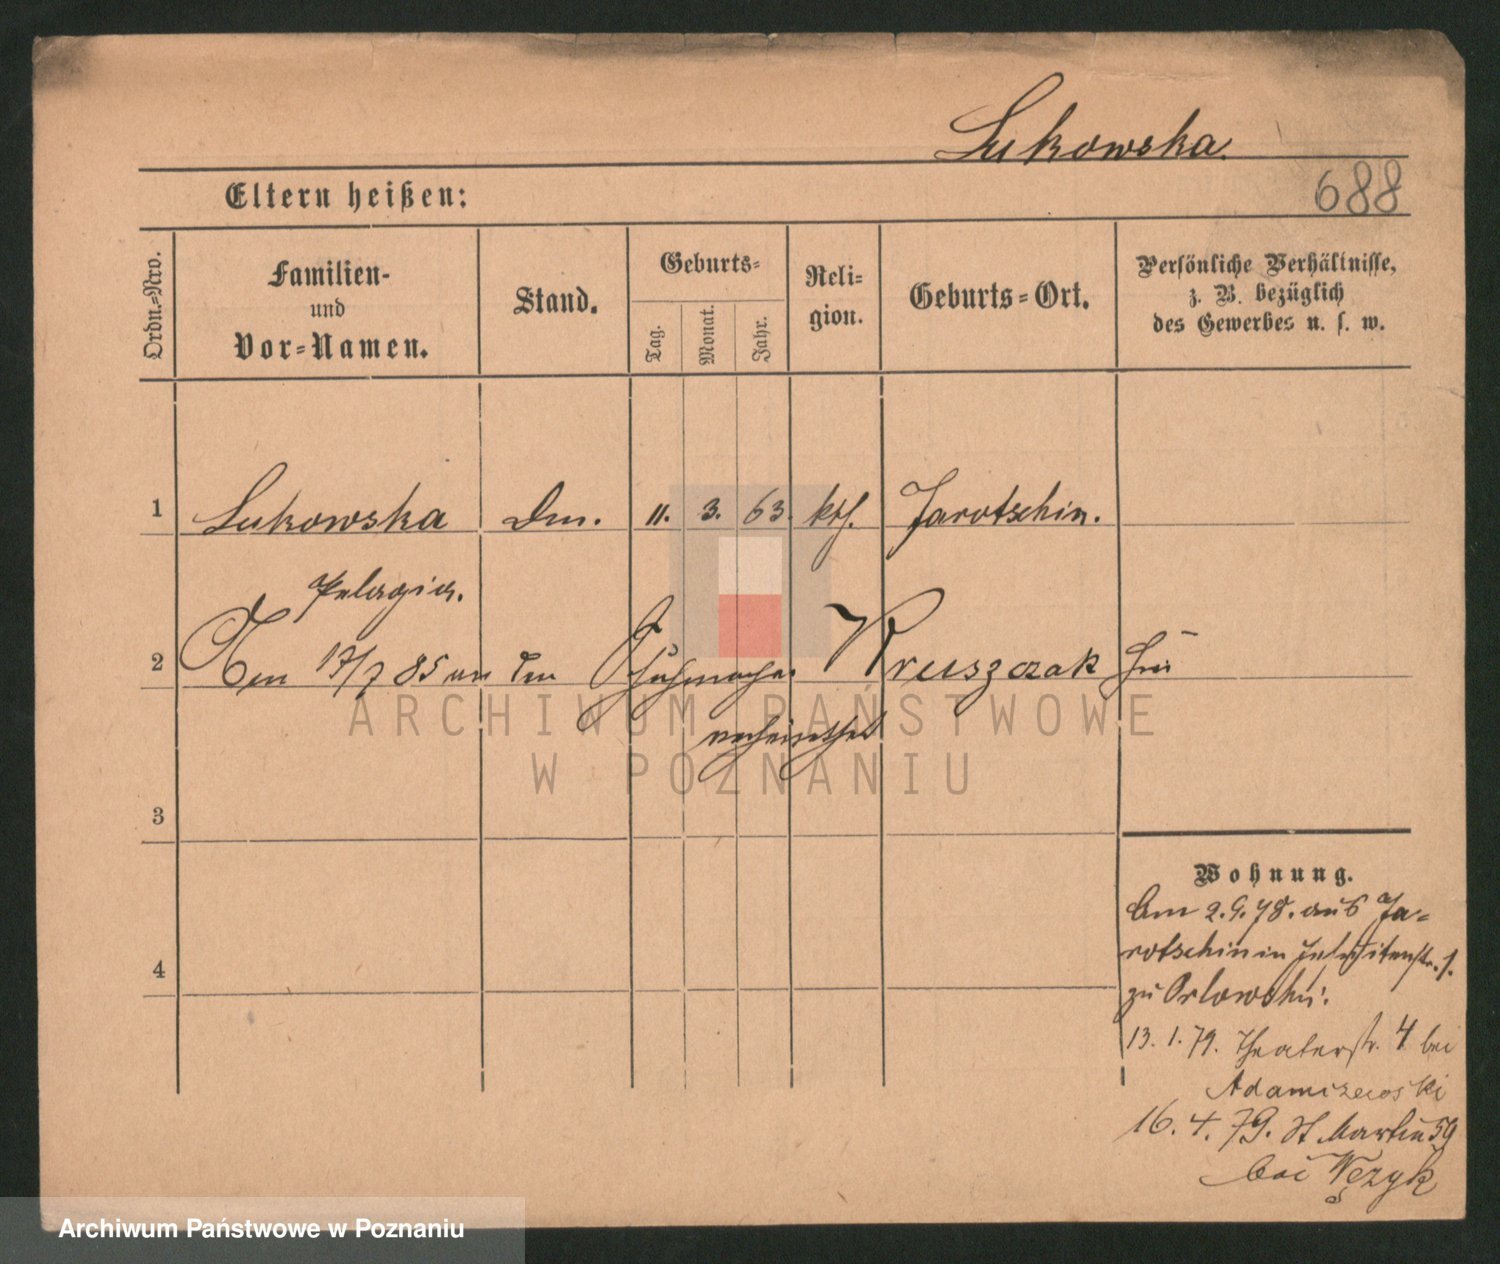 Lukowska.
688
Eltern heißen:
Ordn.=Nro.
Familien-
und
Vor=Namen.
Stand.
Geburts=
Tag.
Monat.
Jahr.
Reli-
gion.
Geburts=Ort.
Persönliche Verhältnisse,
z. B. bezüglich
des Gewerbes u. s. w.
1 Lukowska Dm. 11. 3. 63. kth. Jarotschin.
Pelagia.
2 17/7 85 an den Kruszczak hier
verheirathet
3
4
ARCHIWUM PAŃSTWOWE
W POZNANIU
Wohnung.
Am 2.9.78. aus Ja=
rotschin in Jesuitenstr. 1.
zu Orlowski.
13. 1. 79. Theaterstr. 4 bei
Adamszewski
16. 4. 79. St Martin 59
bei Węzyk
Archiwum Państwowe w Poznaniu